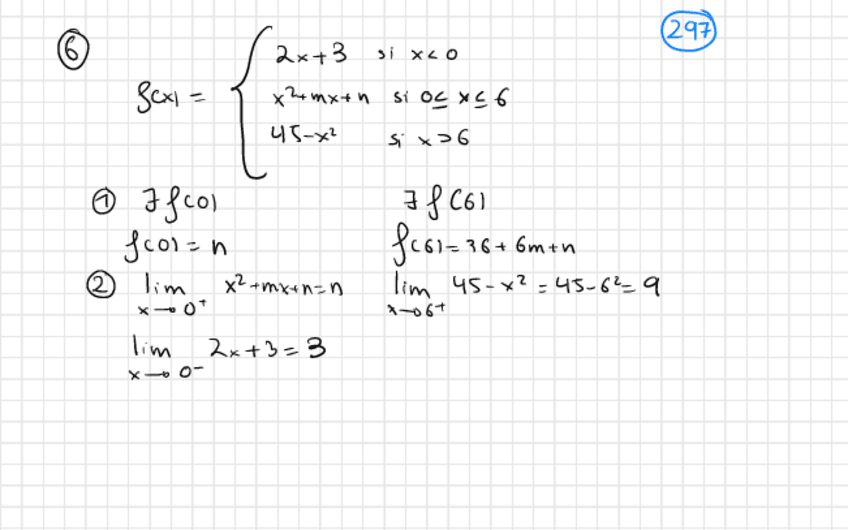 297
⑥ f(x) = { 2x+3 si x<0
x²+mx+n si 0≤x≤6
45-x² si x>6
① ∃f(0) ∃f(6)
f(0)=n f(6)=36+6m+n
② lim x→0⁺ x²+mx+n=n lim x→6⁺ 45-x²=45-6²=9
lim x→0⁻ 2x+3=3